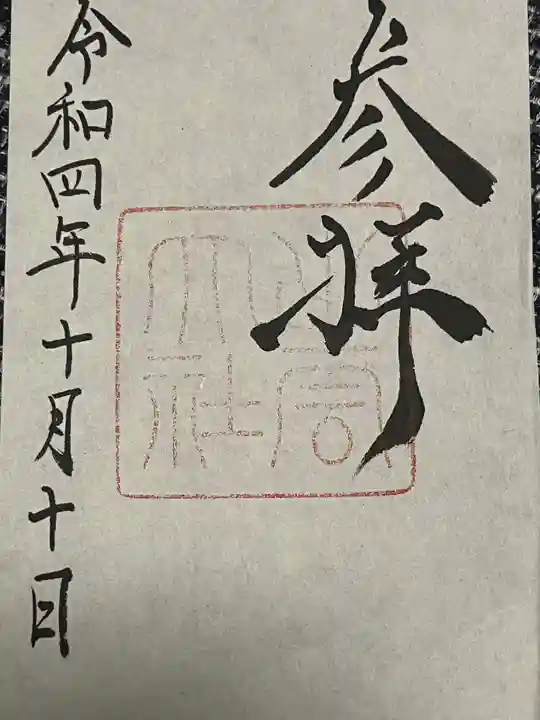 参拝
令和四年十月十日